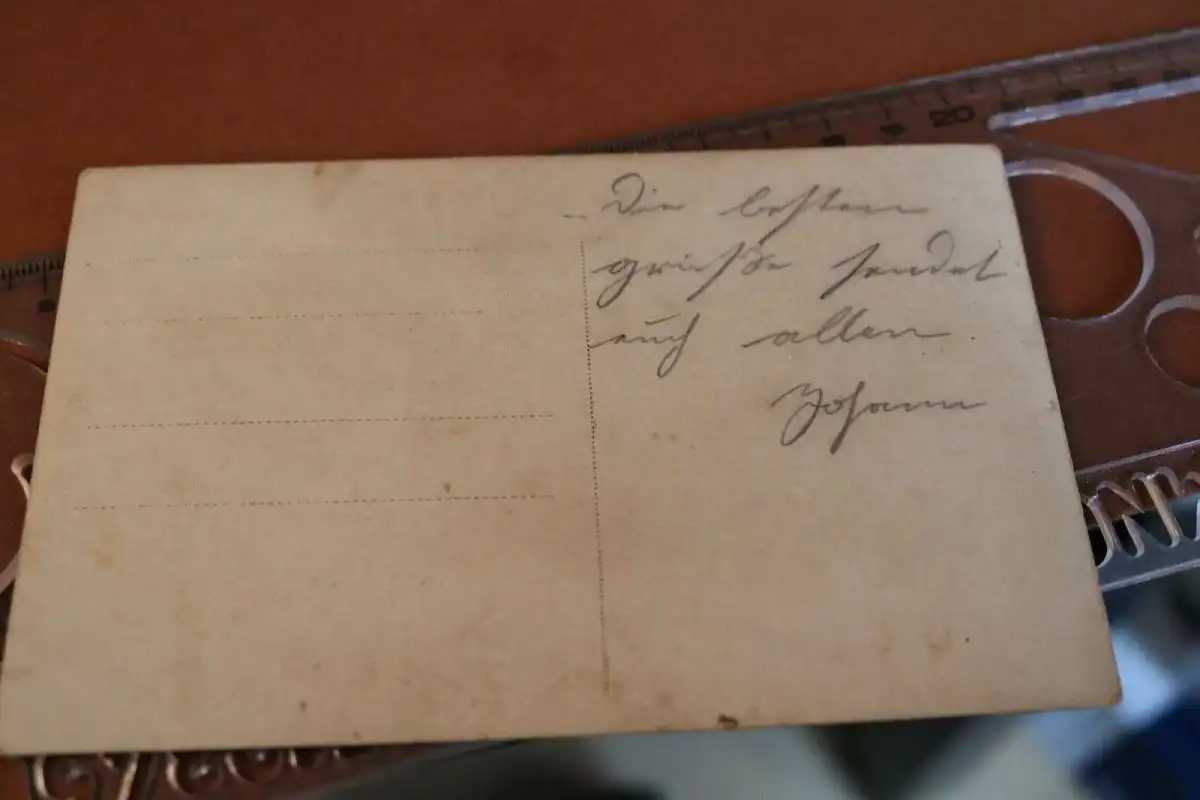 Die besten
grieße sendet
euch allen
Johann
20